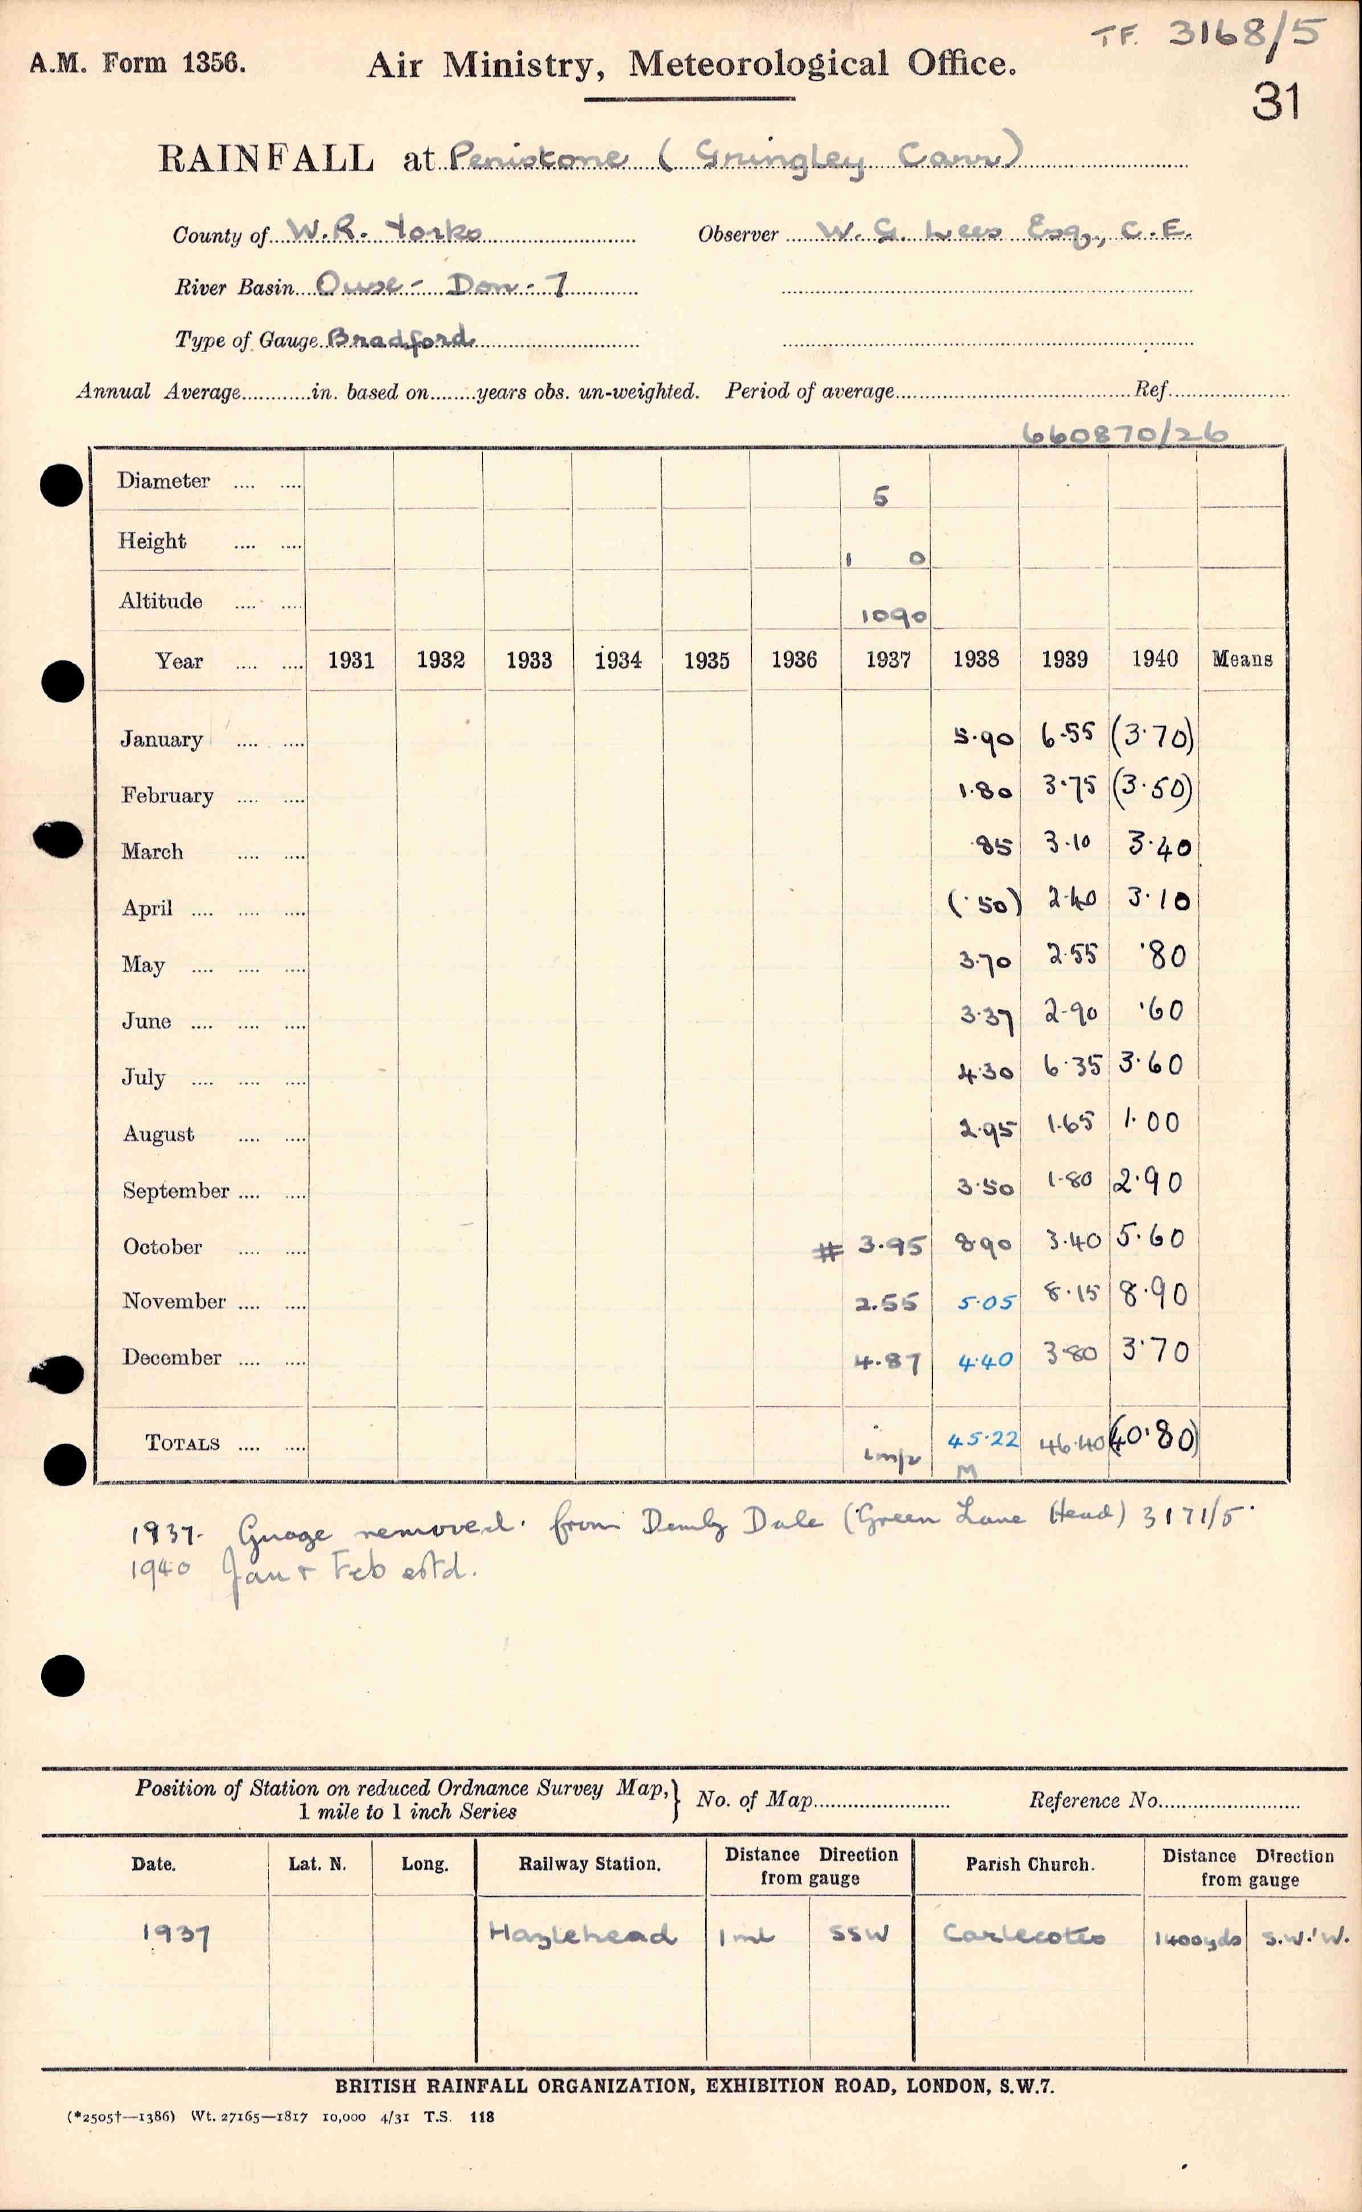 TF. 3168/5
A.M. Form 1356. Air Ministry, Meteorological Office.
31
RAINFALL at Penistone (Gringley Carr)
County of W.R. Yorks Observer W. G. Lees Esq., C.E.
River Basin Ouse - Don - 7
Type of Gauge Bradford
Annual Average............in. based on........years obs. un-weighted. Period of average........................................Ref.....................
660870/26
Diameter .... .... 5
Height .... .... 1 0
Altitude .... .... 1090
Year .... .... 1931 1932 1933 1934 1935 1936 1937 1938 1939 1940 Means
January .... .... 5.90 6.55 (3.70)
February .... .... 1.80 3.75 (3.50)
March .... .... .85 3.10 3.40
April .... .... .... (.50) 2.40 3.10
May .... .... .... 3.70 2.55 .80
June .... .... .... 3.37 2.90 .60
July .... .... .... 4.30 6.35 3.60
August .... .... 2.95 1.65 1.00
September .... .... 3.50 1.80 2.90
October .... .... # 3.95 8.90 3.40 5.60
November .... .... 2.55 5.05 8.15 8.90
December .... .... 4.87 4.40 3.80 3.70
TOTALS .... .... imp 45.22 46.40 (40.80)
M
1937. Guage removed from Denby Dale (Green Lane Head) 3171/5.
1940 Jan & Feb estd.
Position of Station on reduced Ordnance Survey Map, } No. of Map........................ Reference No.........................
1 mile to 1 inch Series
Date. Lat. N. Long. Railway Station. Distance Direction from gauge Parish Church. Distance Direction from gauge
1937 Hazlehead 1 ml SSW Carlecotes 1400yds S.W.'W.
BRITISH RAINFALL ORGANIZATION, EXHIBITION ROAD, LONDON, S.W.7.
(*2505†—1386) Wt. 27165—1817 10,000 4/31 T.S. 118